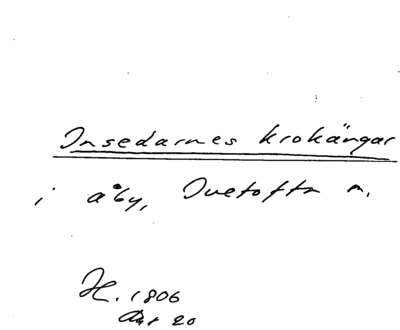 Insedarnes krokängar
i åby, Ivetofta n.
H. 1806
Akt 20